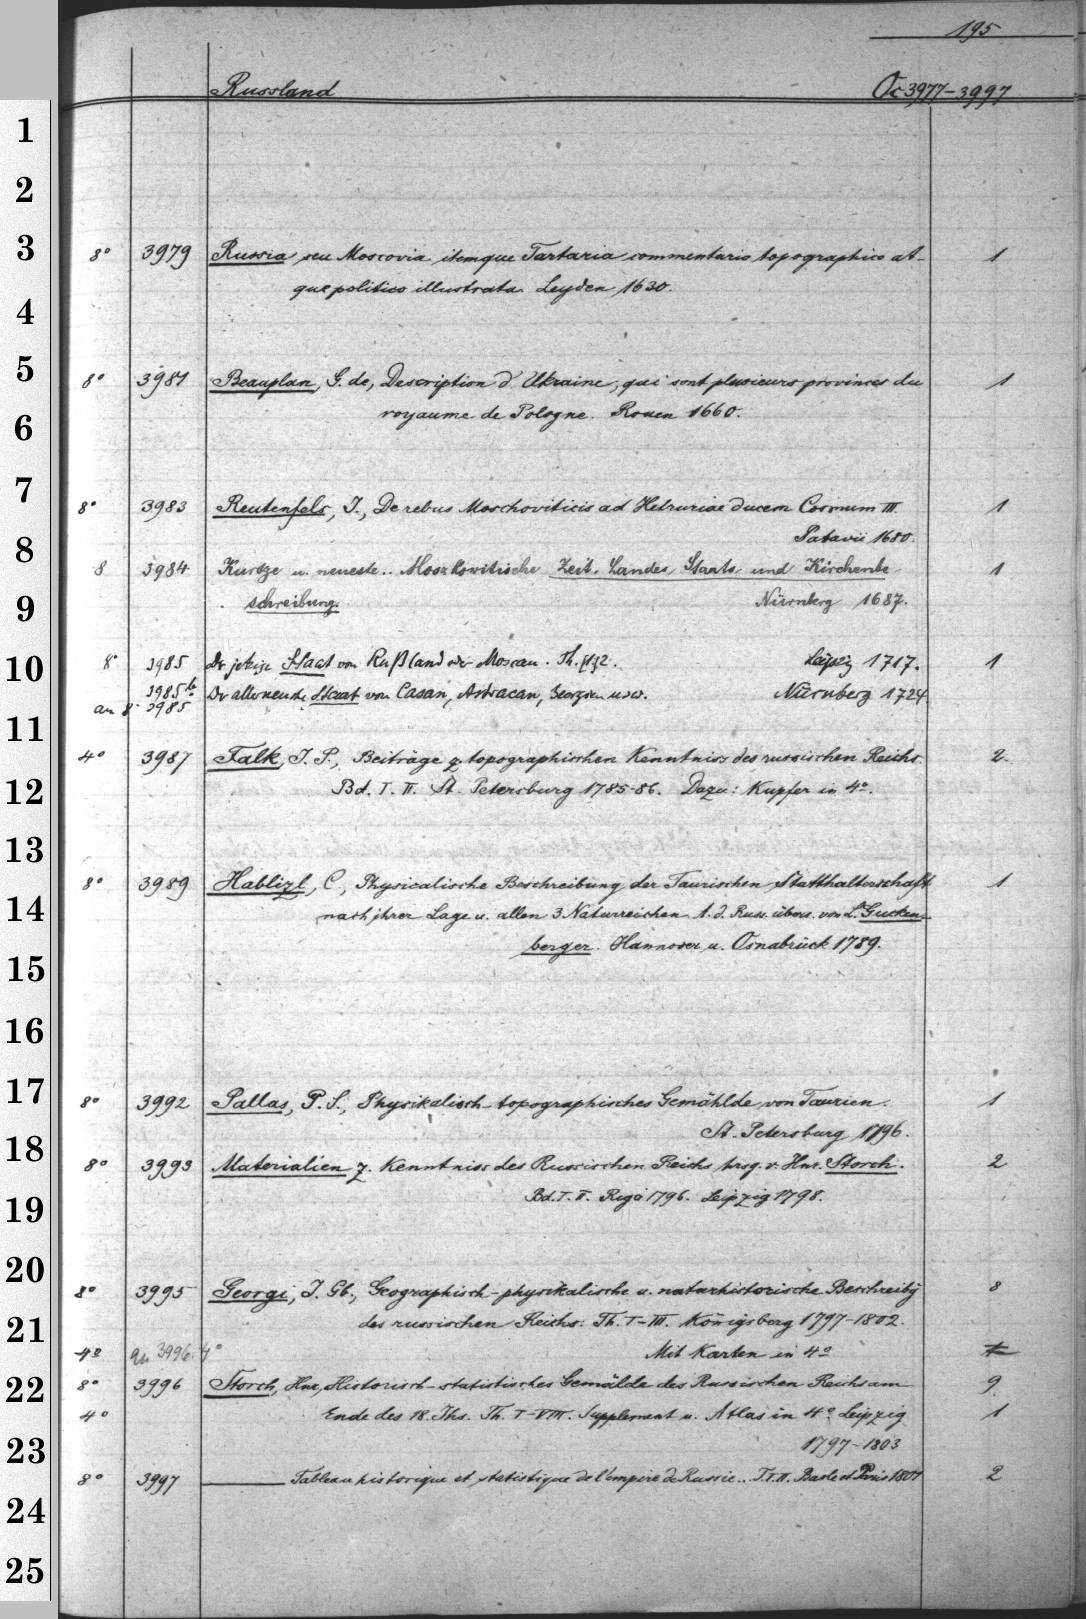 195
Russland Oc 3977-3997
1
2
3
8° 3979 Russia seu Moscovia itemque Tartaria commentario topographico at- 1
que politico illustrata. Leyden 1630.
4
5
8° 3981 Beauplan, G. de, Description d'Ukraine, qui sont plusieurs provinces du 1
royaume de Pologne. Rouen 1660.
6
7
8° 3983 Reutenfels, J., De rebus Moschoviticis ad Hetruriae ducem Cosmum III. 1
Patavii 1680.
8
8 3984 Kurtze u. neueste.. Moszkowitische Zeit, Landes, Staats und Kirchenbe- 1
schreibung. Nürnberg 1687.
9
10
8° 3985 Der jetzige Staat von Rußland oder Moscau. Th. [1]2. Leipzig 1717. 1
3985b Der allerneuste Staat von Casan, Astracan, Georgien usw. Nürnberg 1724.
an 8° 3985
11
4° 3987 Falk, J. P., Beiträge z. topographischen Kenntniss des russischen Reichs. 2.
Bd. I. II. St. Petersburg 1785-86. Dazu: Kupfer in 4°.
12
13
8° 3989 Hablizl, C., Physicalische Beschreibung der Taurischen Statthalterschaft 1
nach ihrer Lage u. allen 3 Naturreichen. A. d. Russ. übers. von L. Gucken-
14
berger. Hannover u. Osnabrück 1789.
15
16
17
8° 3992 Pallas, P. S., Physikalisch-topographisches Gemählde von Taurien. 1
St. Petersburg 1796.
18
8° 3993 Materialien z. Kenntniss des Russischen Reichs hrsg. v. Hnr. Storch. 2
Bd. I. II. Riga 1796. Leipzig 1798.
19
20
8° 3995 Georgi, J. Gb., Geographisch-physikalische u. naturhistorische Beschreibg 8
des russischen Reichs: Th. I-III. Königsberg 1797-1802.
21
4° an 3996. 4° Mit Karten in 4°
22
8° 3996 Storch, Hnr., Historisch-statistisches Gemälde des Russischen Reichs am 9
4° Ende des 18. Jhs. Th. I-VIII. Supplement u. Atlas in 4°. Leipzig 1
1797-1803
23
8° 3997 ——— Tableau historique et statistique de l'empire de Russie.. T. I. II. Basle et Paris 1801 2
24
25